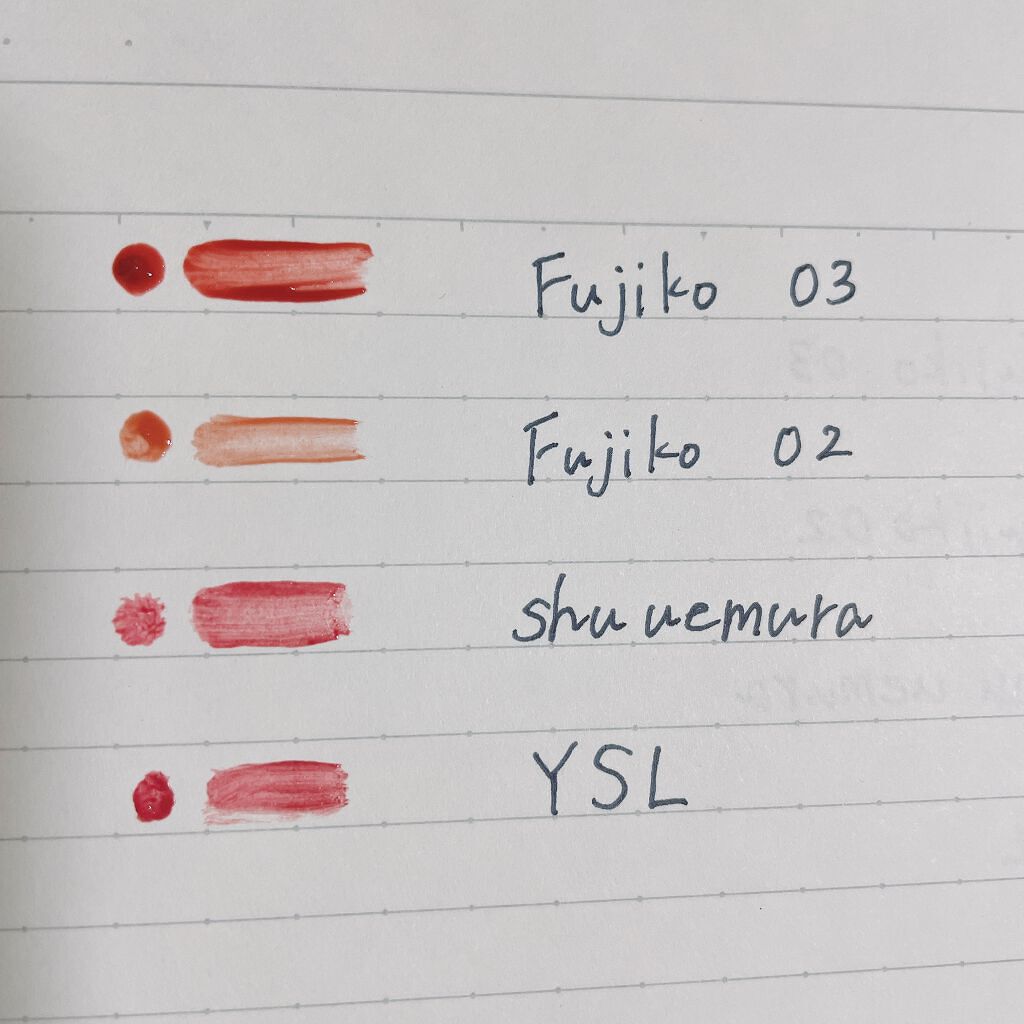 Fujiko 03
Fujiko 02
shu uemura
YSL